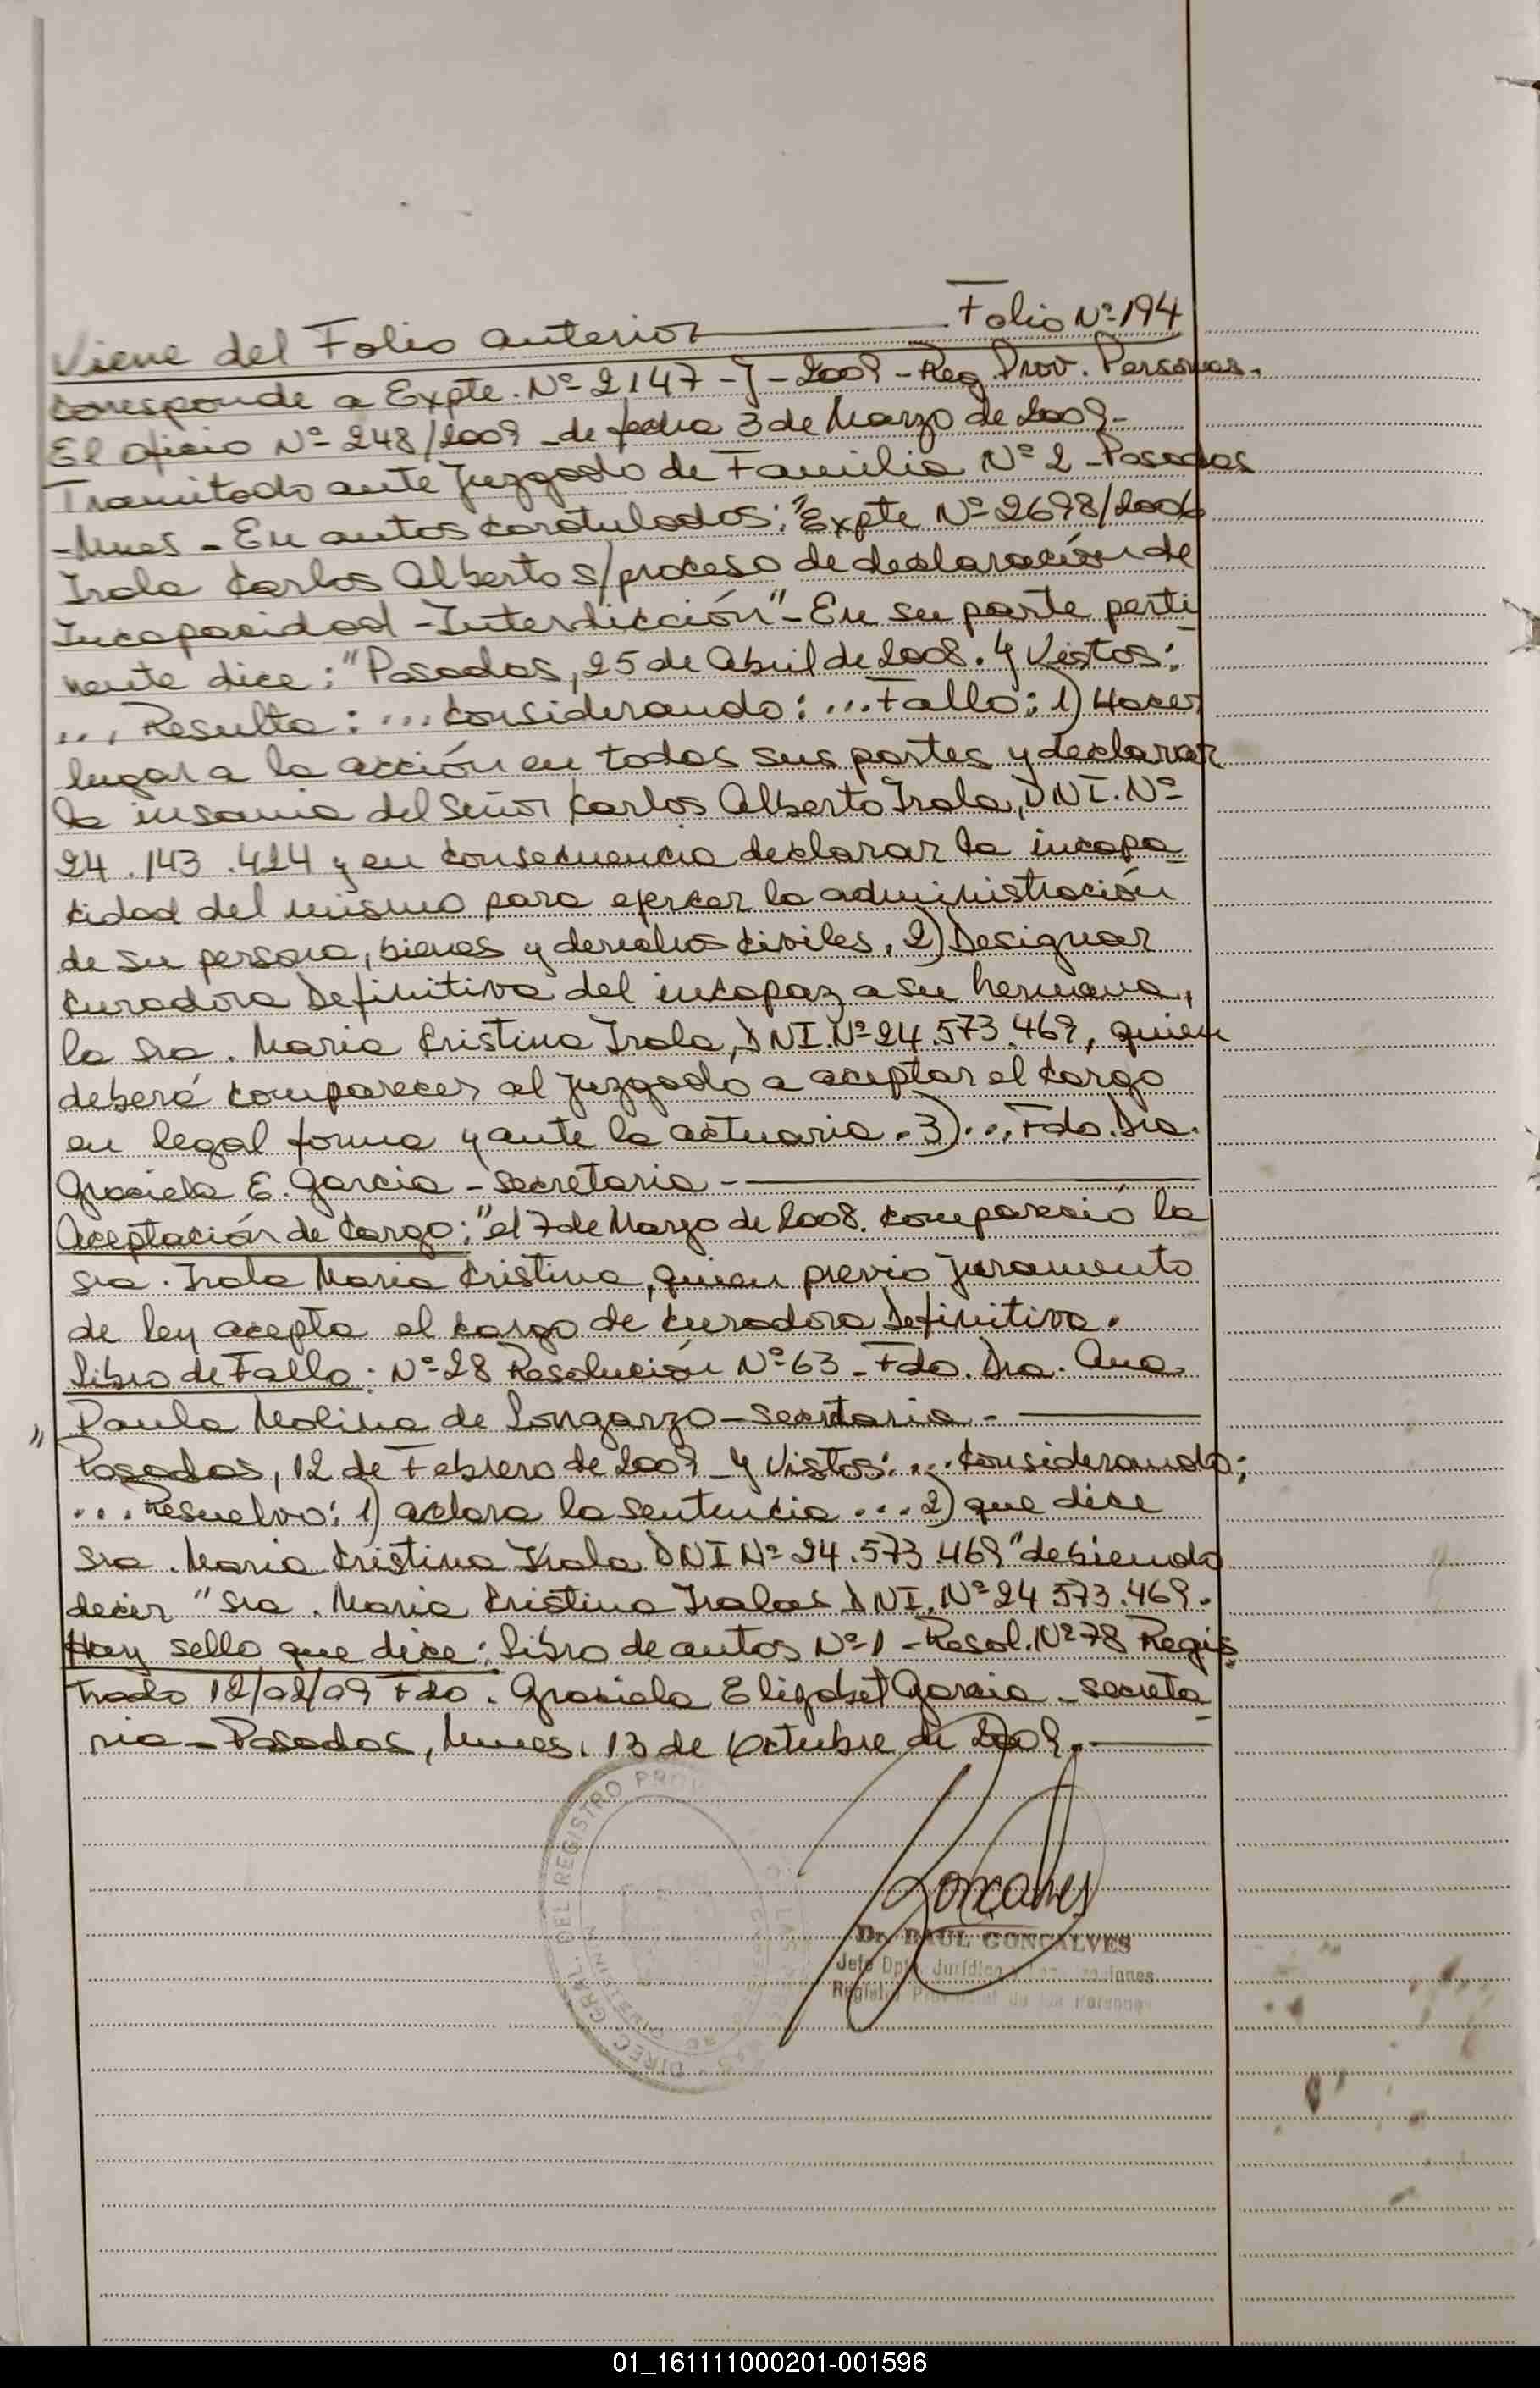 Folio Nº 194
Viene del Folio anterior
Corresponde a Expte. Nº 2147-J-2009-Reg. Prov. Personas.
El oficio Nº 248/2009 - de fecha 3 de Marzo de 2009-
Tramitado ante Juzgado de Familia Nº 2 - Posadas
- Mnes - En autos caratulados: "Expte Nº 2698/2006
Irala Carlos Alberto s/proceso de declaración de
Incapacidad - Interdicción" - En su parte perti
nente dice: "Posadas, 25 de Abril de 2008. Y Vistos:
... Resulta: ... Considerando: ... Fallo: 1) Hacer
lugar a la acción en todas sus partes y declarar
la insania del señor Carlos Alberto Irala, DNI. Nº
24.143.424 y en consecuencia declarar la incapa
cidad del mismo para ejercer la administración
de su persona, bienes y derechos civiles. 2) Designar
Curadora Definitiva del incapaz a su hermana,
la Sra. Maria Cristina Irala, DNI. Nº 24.573.469, quien
deberá comparecer al Juzgado a aceptar el cargo
en legal forma y ante la actuaria. 3)... Fdo. Dra.
Graciela E. Garcia - Secretaria -
Aceptación de Cargo: "el 7 de Marzo de 2008. Compareció la
Sra. Irala Maria Cristina, quien previo juramento
de ley acepta el cargo de Curadora Definitiva.
Libro de Fallo: Nº 28 Resolución Nº 63 - Fdo. Dra. Ana
Paula Molina de Longarzo - Secretaria -
" Posadas, 12 de Febrero de 2009 - Y Vistos: ... Considerando;
... Resuelvo: 1) aclara la sentencia ... 2) que dice
Sra. Maria Cristina Irala DNI Nº 24.573.469" debiendo
decir "Sra. Maria Cristina Iralas DNI. Nº 24.573.469.
Hay sello que dice: Libro de autos Nº 1 - Resol. Nº 78 Regis
trado 12/02/09 Fdo. Graciela Elizabet Garcia - Secreta
ria - Posadas, Mnes. 13 de Octubre de 2009.
DIREC. GRAL. DEL REGISTRO PROV
Goncalves
Dr. RAUL GONCALVES
Jefe Dpto. Jurídico
Registro Provincial de las Personas
01_161111000201-001596